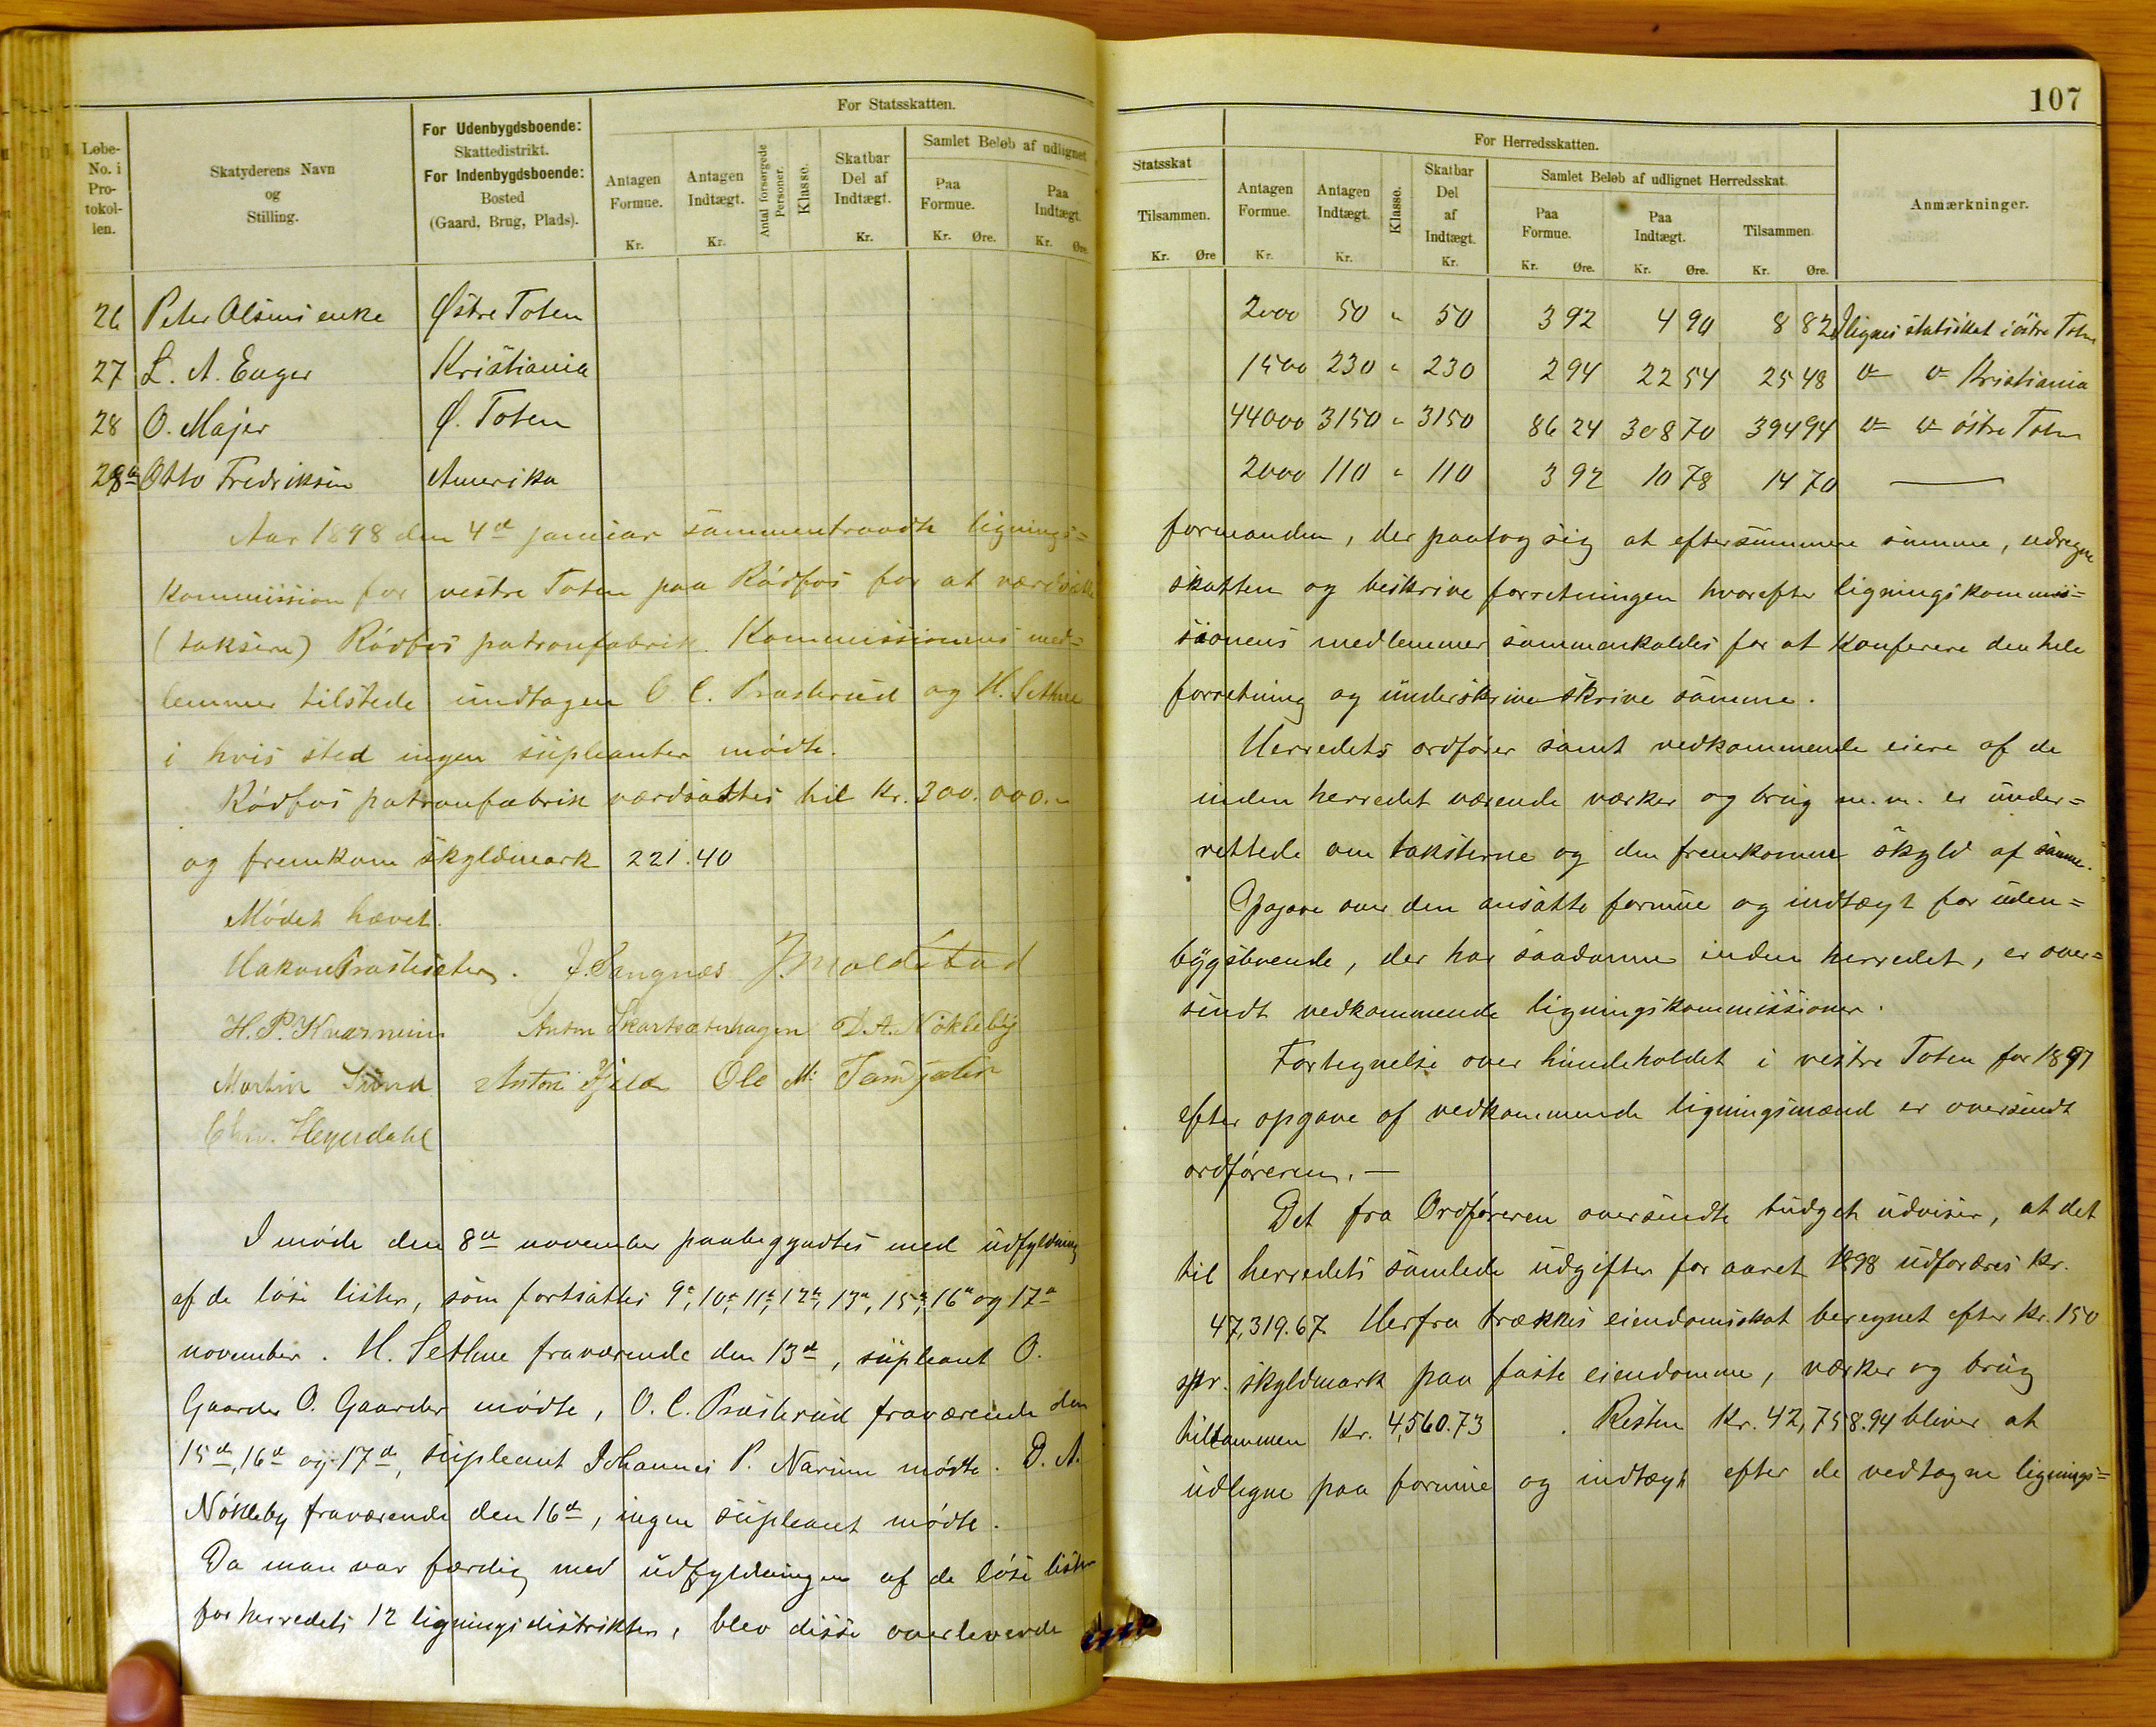 107
Løbe-No. i Protokollen.
Skatyderens Navn og Stilling.
For Udenbygdsboende: Skattedistrikt. For Indenbygdsboende: Bosted (Gaard, Brug, Plads).
For Statsskatten.
Antagen Formue. Kr.
Antagen Indtægt. Kr.
Antal forsørgede Personer.
Klasse.
Skatbar Del af Indtægt. Kr.
Samlet Beløb af udlignet
Paa Formue. Kr. Øre.
Paa Indtægt. Kr. Øre.
Statsskat
Tilsammen. Kr. Øre
For Herredsskatten.
Antagen Formue. Kr.
Antagen Indtægt. Kr.
Klasse.
Skatbar Del af Indtægt. Kr.
Samlet Beløb af udlignet Herredsskat.
Paa Formue. Kr. Øre.
Paa Indtægt. Kr. Øre.
Tilsammen. Kr. Øre.
Anmærkninger.
26 Peter Olsens enke Østre Toten 2000 50 " 50 3 92 4 90 8 82 Ilignes statsskat i østre Toten
27 L. A. Enger Kristiania 1500 230 " 230 2 94 22 54 25 48 Kristiania
28 O. Majer Ø. Toten 44000 3150 " 3150 86 24 308 70 394 94 østre Toten
28a Otto Fredriksen Amerika 2000 110 " 110 3 92 10 78 14 70 —
Aar 1898 den 4de januar sammentraadte lignings=
kommission for vestre Toten paa Rødfos for at værdsætte
(taksere) Rødfos patronfabrik. Kommissionens med=
lemmer tilstede undtagen O. C. Prasterud og H. Sethne
i hvis sted ingen supleanter mødte.
Rødfos patronfabrik værdsattes til Kr. 300.000.-
og fremkom skyldmark 221.40
Mødet hævet.
Hakon Prastesæter. J. Sangnæs J. Moldstad
H. P. Kværnum Anton Skartsæterhagen D. A. Nøkleby
Martin Sund Anton Fjeld Ole M.
Chr. Heyerdahl
I møde den 8de november paabegyndtes med udfyldning
af de løse lister, som fortsattes 9de, 10de, 11te, 12te, 13de, 15de, 16de og 17de
november. H. Sethne fraværende den 13de, supleant O.
Gaarder O. Gaarder mødte, O. C. Prasterud fraværende den
15de, 16de og 17de, supleant Johannes P. Narum mødte. D. A.
Nøkleby fraværende den 16de, ingen supleant mødte.
Da man var færdig med udfyldningen af de løse lister
for herredets 12 ligningsdistrikter, blev disse overleverede
formanden, der paatog sig at eftersummere samme, udregne
skatten og beskrive forretningen hvorefter ligningskommis=
sionens medlemmer sammenkaldes for at konferere den hele
forretning og underskrive skrive samme.
Herredets ordfører samt vedkommende eiere af de
inden herredet værende værker og brug m.m. er under=
rettede om taksterne og den fremkomne skyld af samme.
Opgave over den ansatte formue og indtægt for uden=
bygsboende, der har saadanne inden herredet, er over=
sendt vedkommende ligningskommissioner.
Fortegnelse over hundeholdet i vestre Toten for 1897
efter opgave af vedkommende ligningsmænd er oversendt
ordføreren. —
Det fra Ordføreren oversendte budget udviser, at det
til herredets samlede udgifter for aaret 1898 udfordres Kr.
47,319.67. Herfra trækkes eiendomsskat beregnet efter Kr. 150
pr. skyldmark paa faste eiendomme, værker og brug
tilsammen Kr. 4,560.73. Resten Kr. 42,758.94 bliver at
udlegne paa formue og indtægt efter de vedtagne lignings=